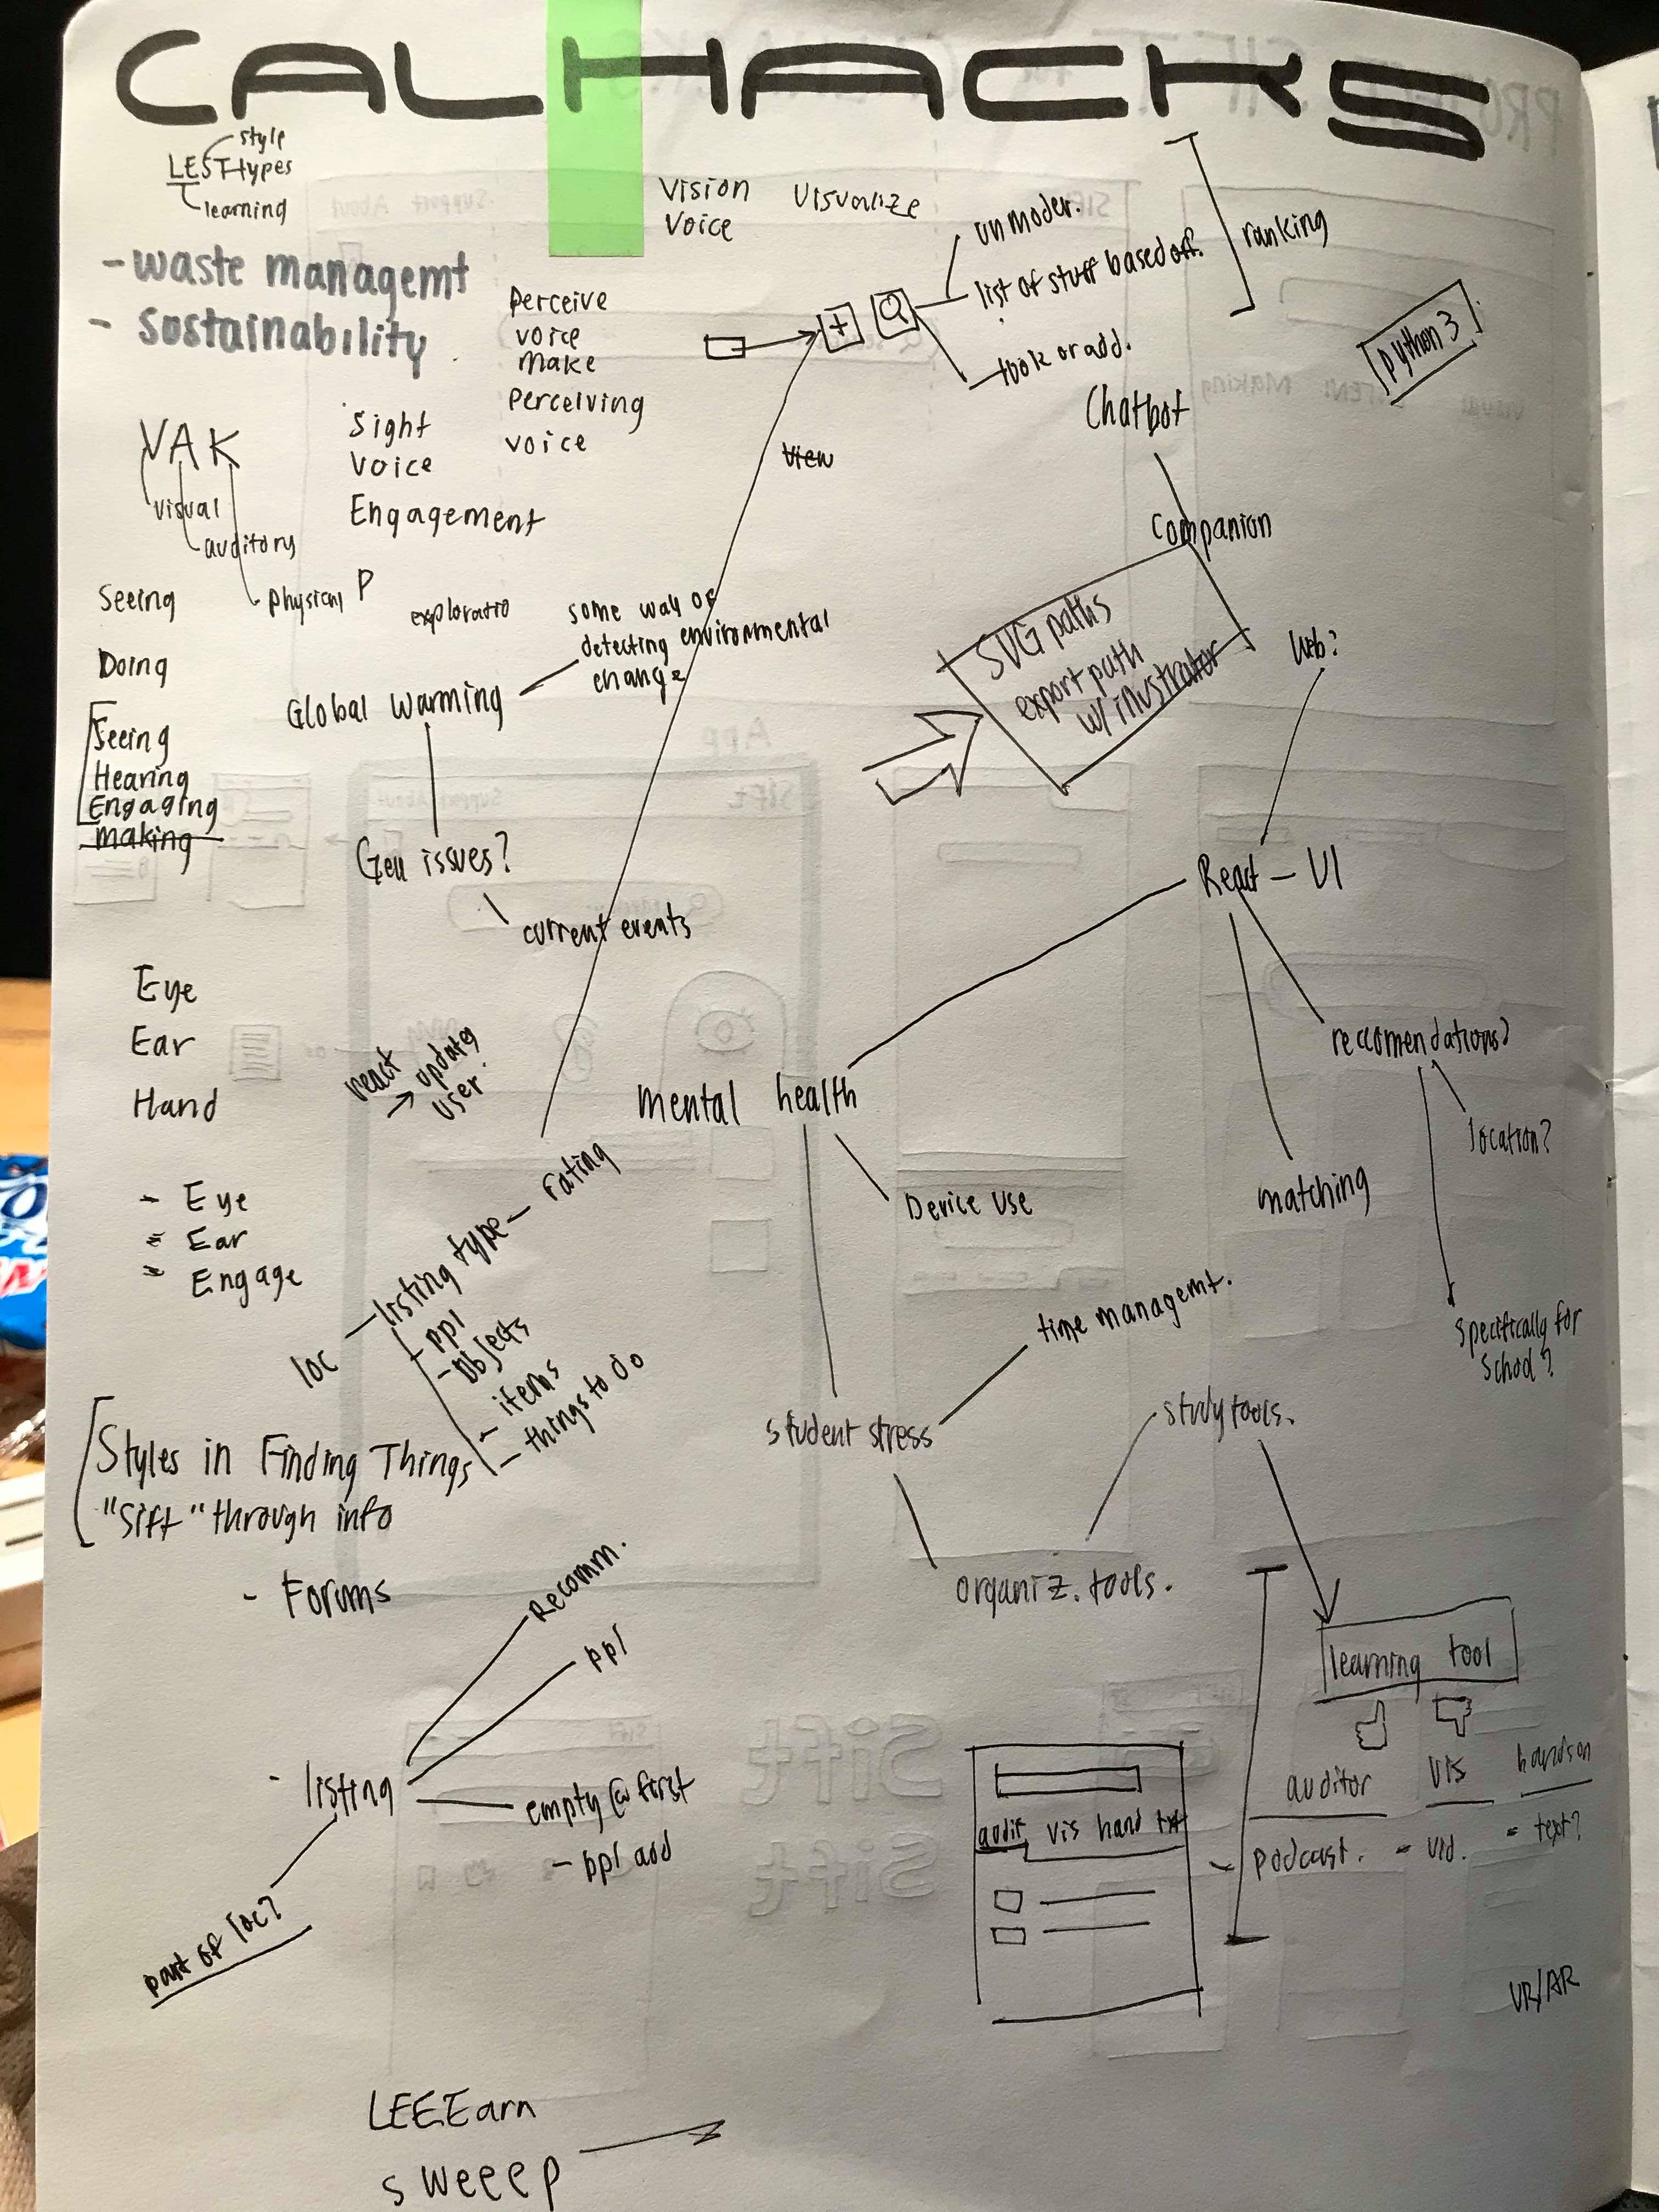 CALHACKS
style
LEST types
learning
- waste managemt
- sustainability
Vision
Voice
Visualize
un moder.
list of stuff based off.
took or add.
ranking
python 3
perceive
voice
make
perceiving
voice
VAK
visual
auditory
physical P
Sight
Voice
Engagement
View
Chatbot
Companion
Seeing
Doing
Seeing
Hearing
Engaging
making
exploratio
some way of
detecting environmental
change
Global warming
Gen issues?
current events
SVG paths
export path
w/ illustrator
Web?
React - UI
reccomendations?
location?
matching
specifically for
school?
Eye
Ear
Hand
react
→ update
user
mental health
Device use
- Eye
- Ear
- Engage
loc - listing type - rating
- ppl
- objects
- items
- things to do
time managemt.
student stress
study tools.
organiz. tools.
Styles in Finding Things
"Sift" through info
- Forums
Recomm.
ppl
- listing
empty @ first
- ppl add
part of loc?
learning tool
auditor vis handson
- podcast. - vid. - text?
audit vis hand txt
VR/AR
LEEEarn
sweeep